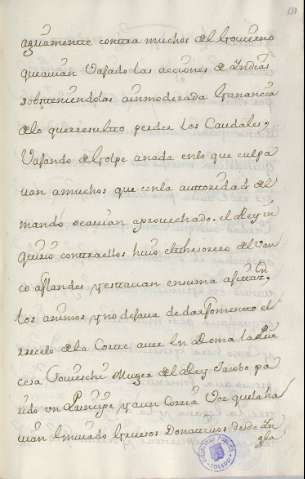 aguamente contra muchos del Gouierno
que auian vajado las acciones de Indias
sobteniendolas a inmoderada Ganancia
de lo que resulto perder los Caudales, y
vajando de Golpe a nada en lo que culpa
uan a muchos que con la autoridad del
mando se auian aprouechado. el Rey in
quirio contra ellos huio el thesorero del van
co a flandes y estauan en suma
los animos y no dejaua de dar fomento el
recelo de la Corte auer en Roma la Prin
cesa Muger del Rey Jacobo pa
rido vn Principe y aun corria voz que la ha
uian embiado Gruesos Donatiuos desde In
gla